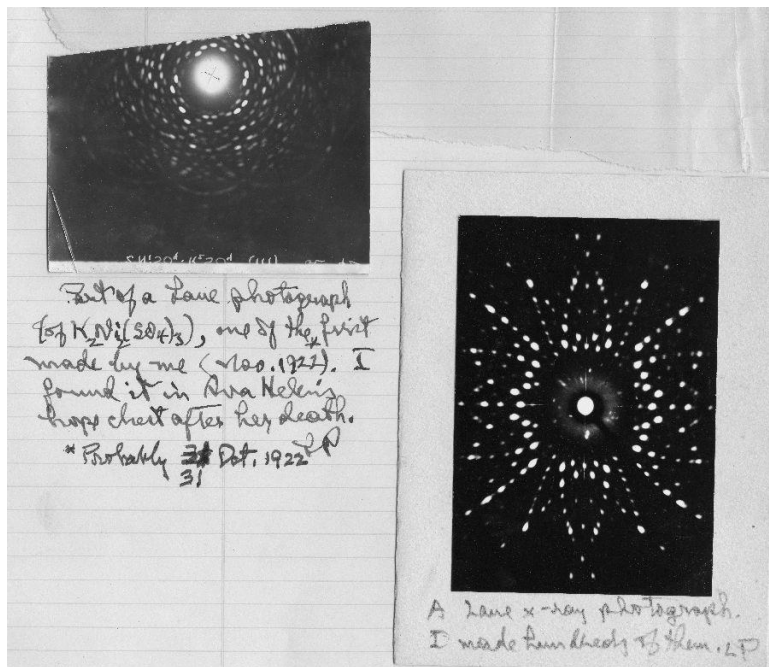 Part of a Laue photograph
(of K2Ni2(SO4)3), one of the* first
made by me (Nov. 1922). I
found it in Ava Helen's
hope chest after her death.
* Probably 31 Oct. 1922 LP
A Laue x-ray photograph.
I made hundreds of them. LP